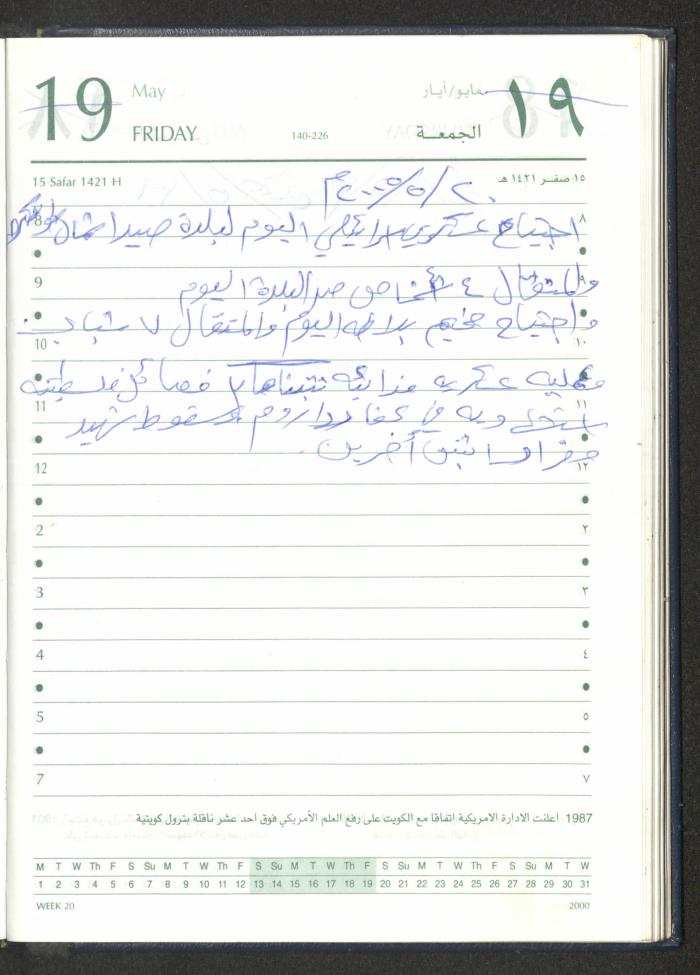 19 May مايو/أيار ١٩
FRIDAY 140-226 الجمعـة
15 Safar 1421 H ١٥ صفـر ١٤٢١ هـ
اجتياح عسكري اسرائيلي اليوم لبلدة صيدا شمال طولكرم
8 ٨
واعتقال ٤ اشخاص من البلدة اليوم
9 ٩
واجتياح مخيم بلاطه اليوم واعتقال ٧ شباب
10 ١٠
وعمليه عسكريه فدائيه تتبناها ٣ فصائل فلسطينيه
11 ١١
في كفار داروم سقوط شهيد
أخرين.
12 ١٢
2 ٢
3 ٣
4 ٤
5 ٥
7 ٧
1987 اعلنت الادارة الامريكية اتفاقا مع الكويت على رفع العلم الأمريكي فوق احد عشر ناقلة بترول كويتية
M T W Th F S Su M T W Th F S Su M T W Th F S Su M T W Th F S Su M T W
1 2 3 4 5 6 7 8 9 10 11 12 13 14 15 16 17 18 19 20 21 22 23 24 25 26 27 28 29 30 31
WEEK 20 2000